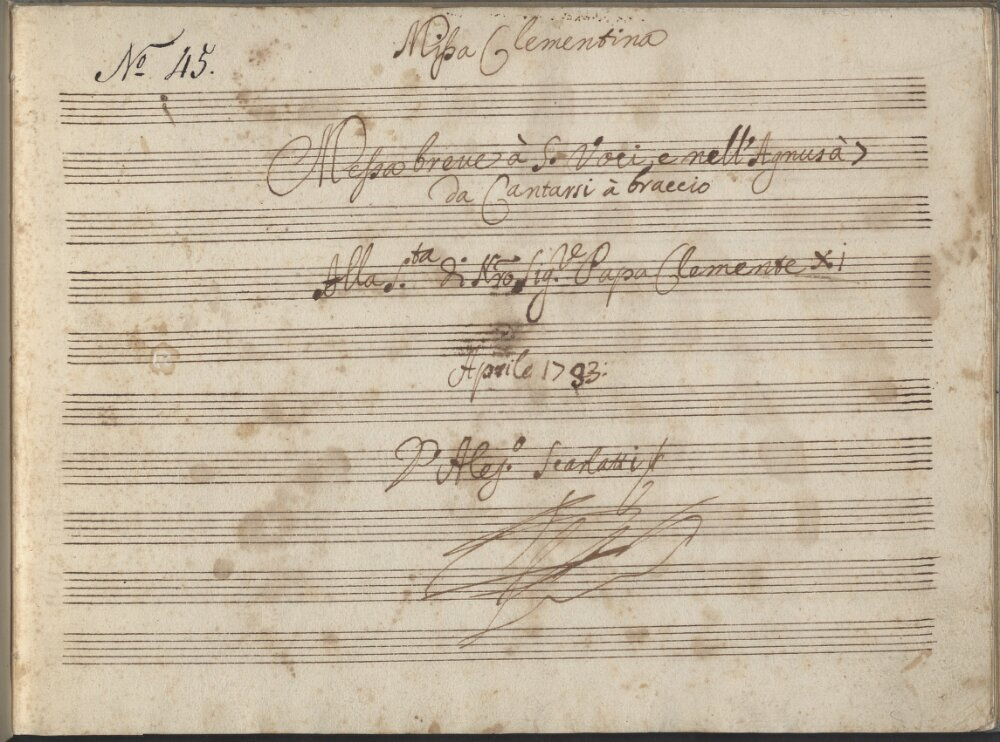 Missa Clementina
No 45.
Messa breue à 5. Voci, e nell'Agnus à 7
da Cantarsi à braccio
Alla S.ta di Nro Sig.e Papa Clemente XI
Aprile 1703:
D'Aless.o Scarlatti